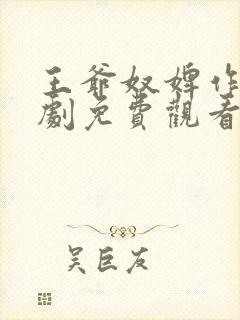 王爺奴婢作
劇免費觀看
吴巨友